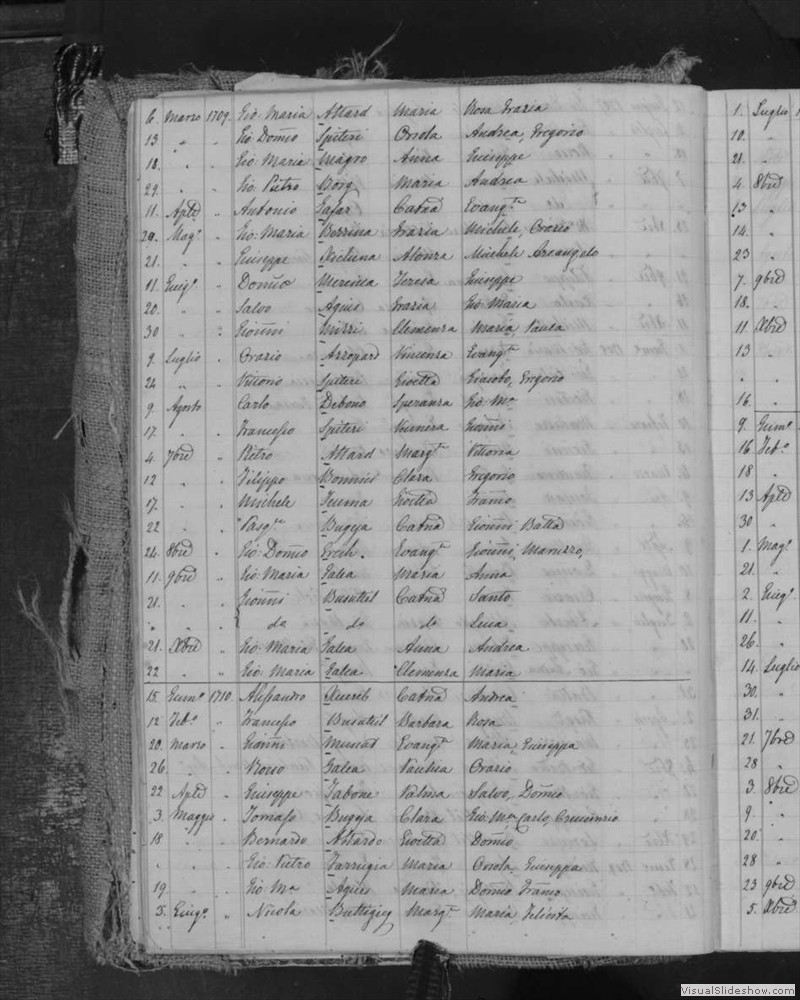 6. Marzo 1709. Gio: Maria Attard Maria Rosa Grazia
13 " " Gio: Domco Spiteri Orsola Andrea, Gregorio
18. " " Gio: Maria Magro Anna Giuseppe
29. " " Gio. Pietro Borg Maria Andrea
11. Aple " Antonio Zafar Catna Evangta
20. Magо " Gio: Maria Bezzina Grazia Michele, Orazio
21. " " Giuseppe Alonza Michele Arcangelo
11. Giugo " Domco Mercieca Teresa Giuseppe
20. " " Salvo Agius Grazia Gio Maria
30 " " Gionni Mizzi Clemenza Maria, Paula
9. Luglio " Orazio Azzopard Vincenza Evangta
24 " " Vittorio Spiteri Gioetta Giacobo, Gregorio
9. Agosto " Carlo Debono Speranza Gio: Ma
17. " " Francesco Spiteri Gionni
4. 7bre " Pietro Attard Margta Vittoria
12 " " Filippo Bonnici Clara Gregorio
17. " " Michele Gioetta
22 " " Pasqle Bugeja Catna Gionni Batta
24. 8bre " Gio: Domco Evangta Gionni Maruzzo,
11. 9bre " Gio: Maria Galea Maria Anna
21. " " Gionni Busuttil Catna Santo
" " " do do do Luca
21. Xbre " Gio: Maria Galea Anna Andrea
22 " " Gio: Maria Galea Clemenza Maria
15. Genno 1710. Alessandro Xuereb Catna Andrea
12 Febo " Francesco Busuttil Barbara Rosa
20. Marzo " Gionni Evangta Maria, Giuseppa
26. " " Galea Paulica Orazio
22 Aple " Giuseppe Tabone Palma Salvo, Domco
3. Maggio " Tomaso Bugeja Clara Gio Ma Carlo,
18 " " Bernardo Attardo Gioetta Domco
" " " Gio: Pietro Farrugia Maria Orsola, Giuseppa
19 " " Gio: Ma Agius Maria Domco
5. Giugo " Nicola Buttigieg Margta Maria, Felicita
1. Luglio
10. "
21. "
4. 8bre
13 "
14. "
23 "
7. 9bre
18. "
11 Xbre
13 "
" "
16. "
9. Genno
16. Febo
18 "
13 Aple
30 "
1. Mago
21. "
2. Giugo
11. "
26. "
14. Luglio
30. "
31. "
21. 7bre
28 "
3. 8bre
9. "
20. "
28 "
23 9bre
5. Xbre
VisualSlideshow.com